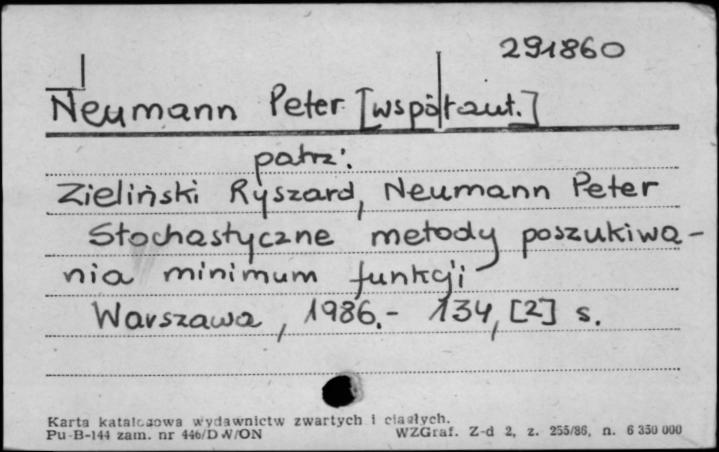 291860
Neumann Peter [współaut.]
patrz:
Zieliński Ryszard, Neumann Peter
Stochastyczne metody poszukiwa-
nia minimum funkcji
Warszawa, 1986.- 134, [2] s.
Karta katalogowa wydawnictw zwartych i ciągłych.
Pu-B-144 zam. nr 446/DW/ON WZGraf. Z-d 2, z. 255/86, n. 6 350 000